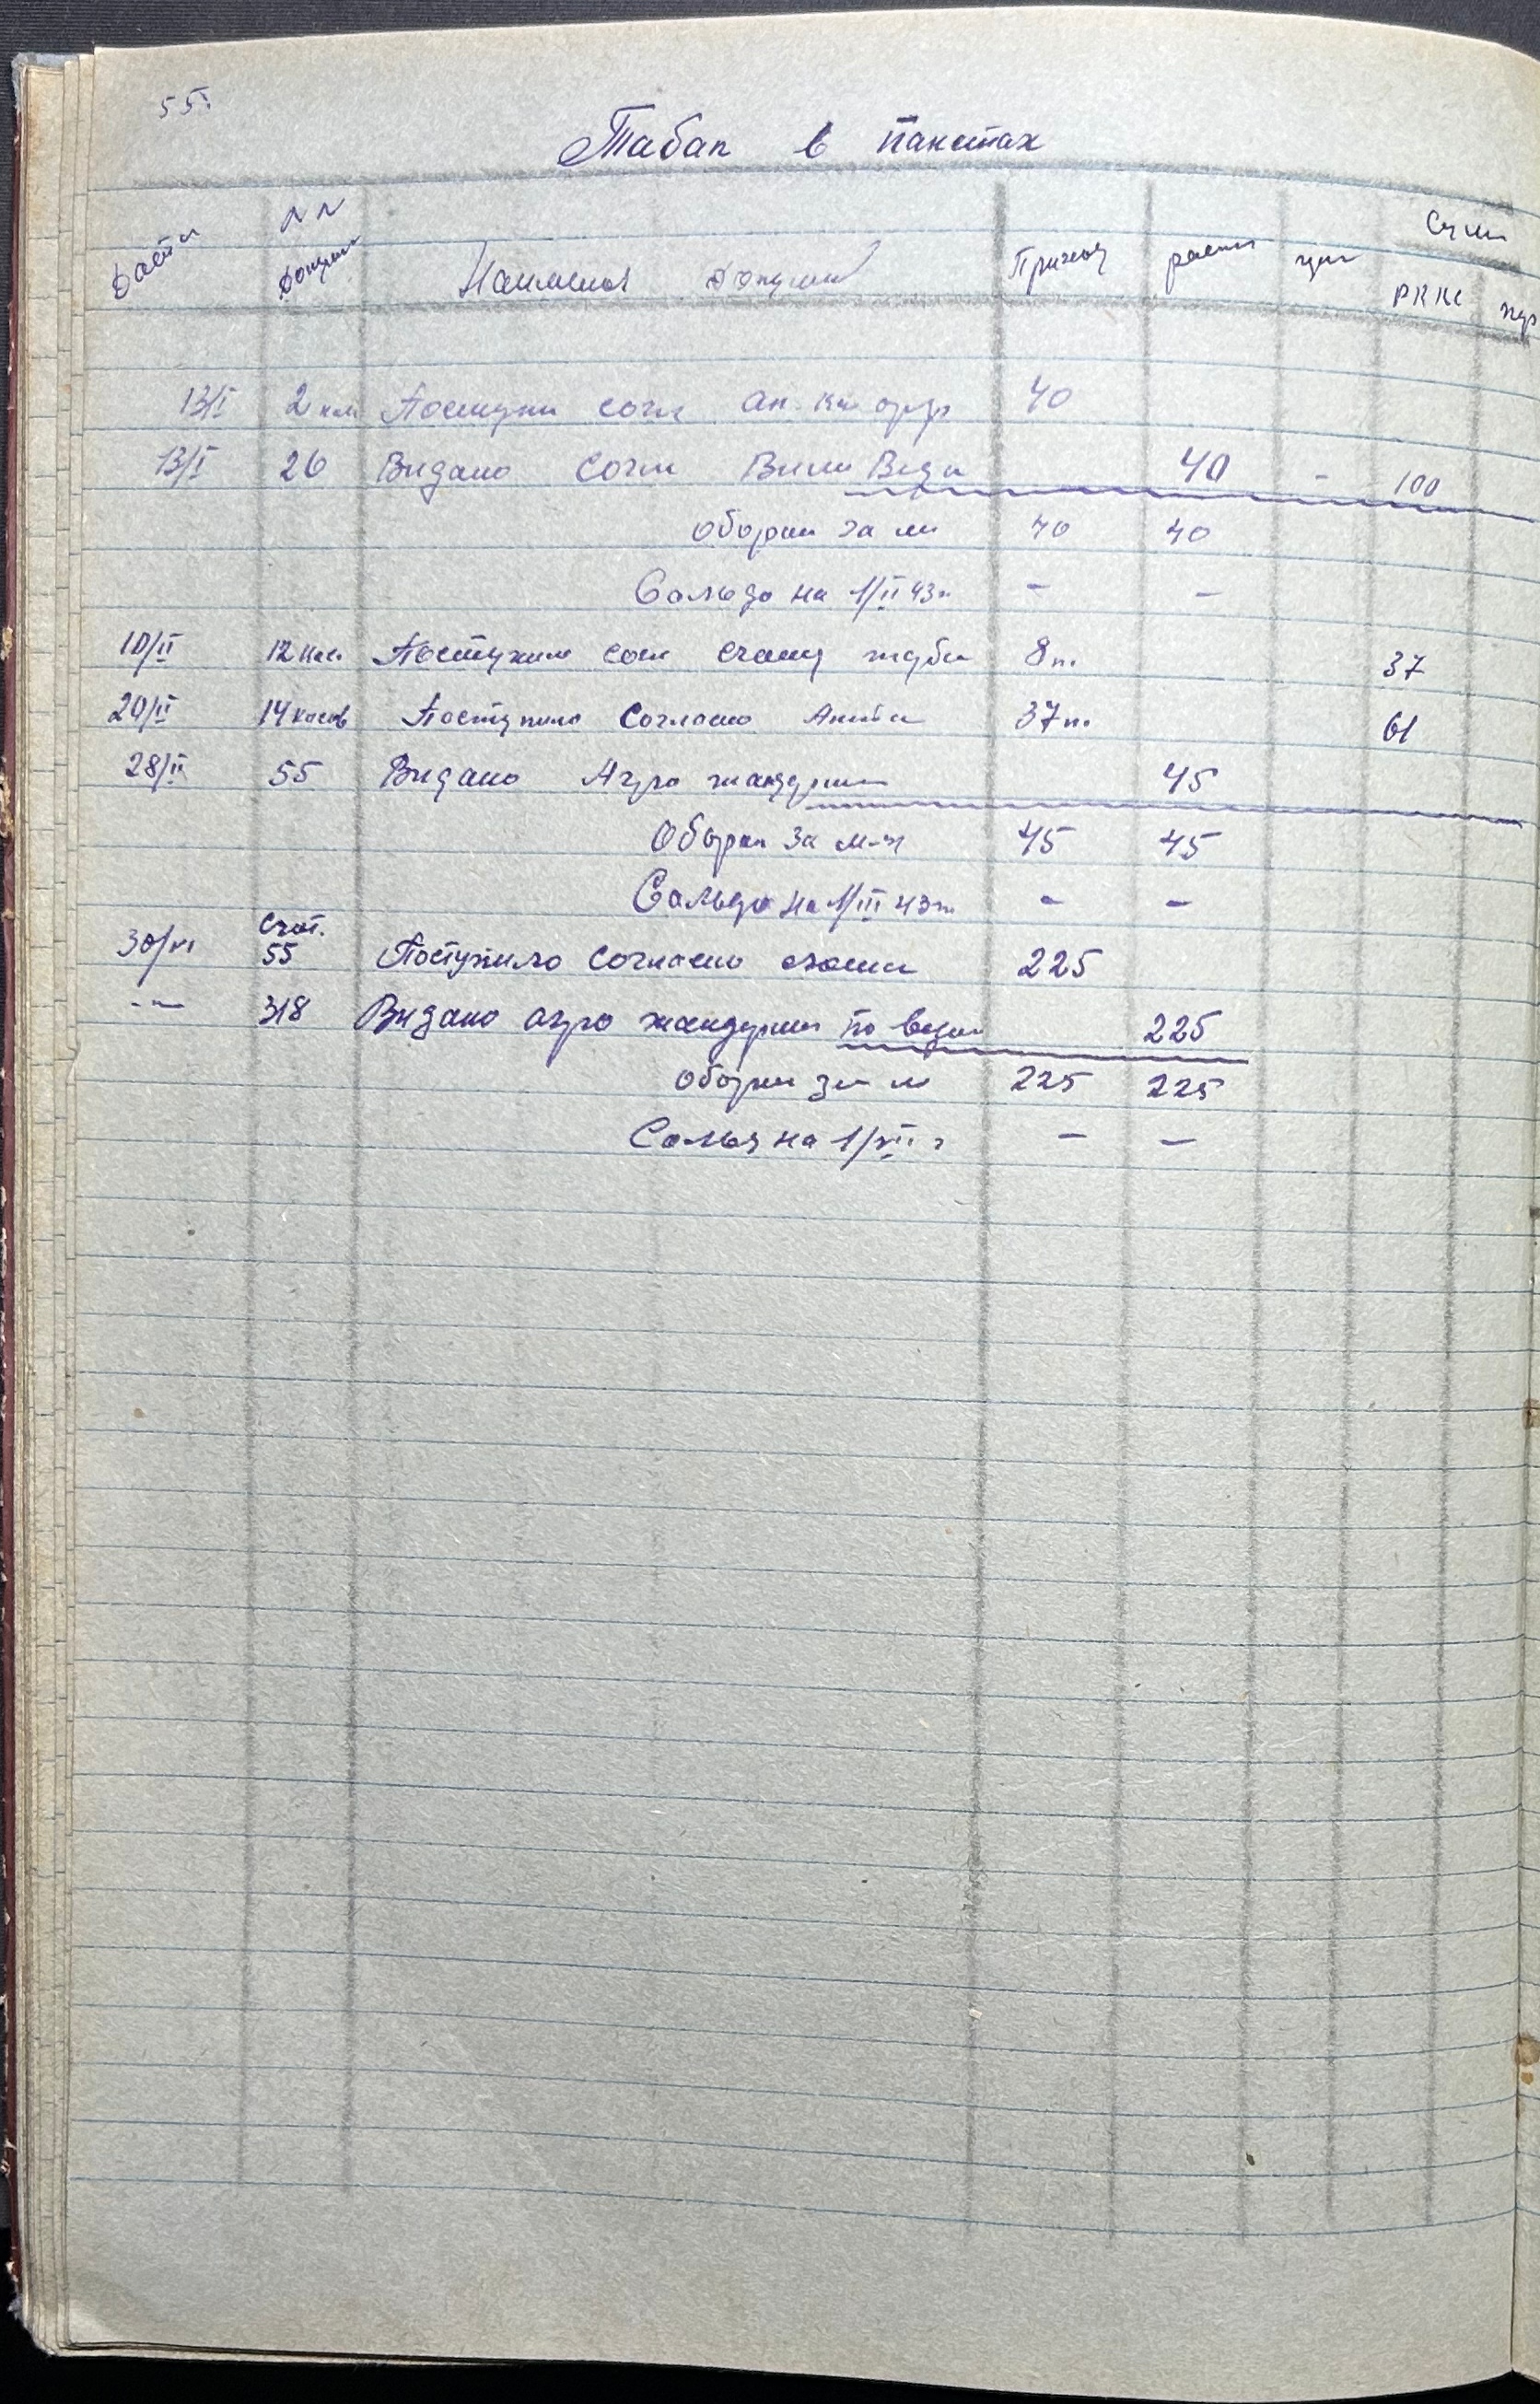 55.
Табак в пакетах
Дата
№№ Докумен
Наименов Докумен
Приход
расход
цен
Сумм
РККС
13/I 2 Поступи согл 40
13/I 26 Видано Согл Веде 40 - 100
Оборот за м 40 40
Сальдо на 1/II 43г. - -
10/II 12 Поступило согл счету 8п. 37
20/II 14 касов Поступило Согласно 37п. 61
28/II 55 Видано Агро жандарм 45
Оборот за м-ц 45 45
Сальдо на 1/III 43г. - -
Счет.
30/VI 55 Поступило Согласно счета 225
-"- 318 Видано агро жандарми по ведом 225
Оборот за м 225 225
Сальд на 1/VII г - -